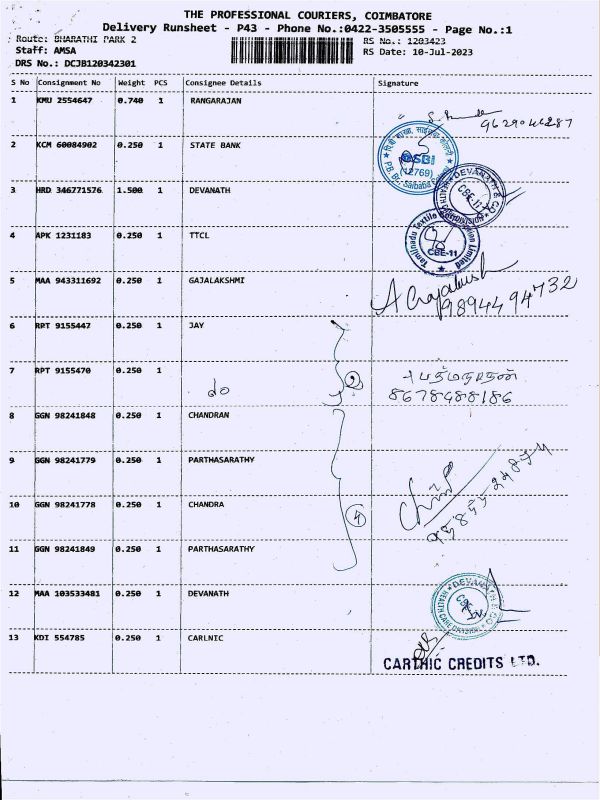 THE PROFESSIONAL COURIERS, COIMBATORE
Delivery Runsheet - P43 - Phone No.:0422-3505555 - Page No.:1
Route: BHARATHI PARK 2
RS No.: 1203423
Staff: AMSA
RS Date: 10-Jul-2023
DRS No.: DCJB120342301
S No Consignment No Weight PCS Consignee Details Signature
1 KMU 2554647 0.740 1 RANGARAJAN
2 KCM 60084902 0.250 1 STATE BANK
SBI
(12769)
3 HRD 346771576 1.500 1 DEVANATH
DEVANATH
CBE-11
4 APK 1231183 0.250 1 TTCL
Tamilnadu Textile Corporation Limited
CBE-11
5 MAA 943311692 0.250 1 GAJALAKSHMI
A Gajalakshmi
9894494732
6 RPT 9155447 0.250 1 JAY
7 RPT 9155470 0.250 1 do
2
பத்மநாதன்
8678488186
8 GGN 98241848 0.250 1 CHANDRAN
9 GGN 98241779 0.250 1 PARTHASARATHY
10 GGN 98241778 0.250 1 CHANDRA
4
11 GGN 98241849 0.250 1 PARTHASARATHY
12 MAA 103533481 0.250 1 DEVANATH
DEVANATH
HEALTH CARE DIVISION
13 KDI 554785 0.250 1 CARLNIC
CARTHIC CREDITS LTD.